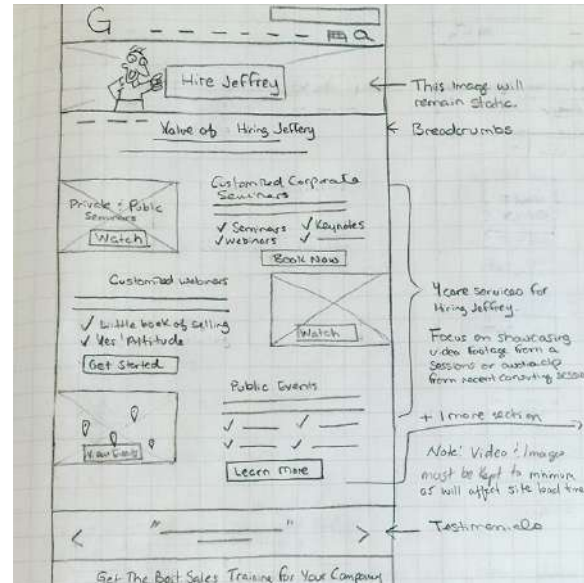 G
Hire Jeffrey
This image will
remain static.
Value of : Hiring Jeffery
Breadcrumbs
Private & Public
Seminars
Watch
Customized Corporate
Seminars
✓ Seminars ✓ Keynotes
✓ Webinars ✓
Book Now
Customized Webinars
✓ Little book of selling
✓ Yes! Attitude
Get Started
Watch
4 core services for
Hiring Jeffrey.
Focus on showcasing
video footage from a
sessions or audio clip
from recent consulting
Public Events
View Events
Learn More
+ 1 more section
Note: Video & Images
must be kept to minimum
as will affect site load time
" "
< >
Testimonials
Get The Best Sales Training For Your Company